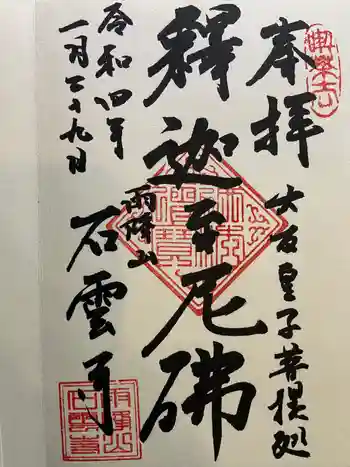 奉拝
大友皇子菩提処
釋迦牟尼佛
雨降山
石雲寺
令和四年
一月二十九日